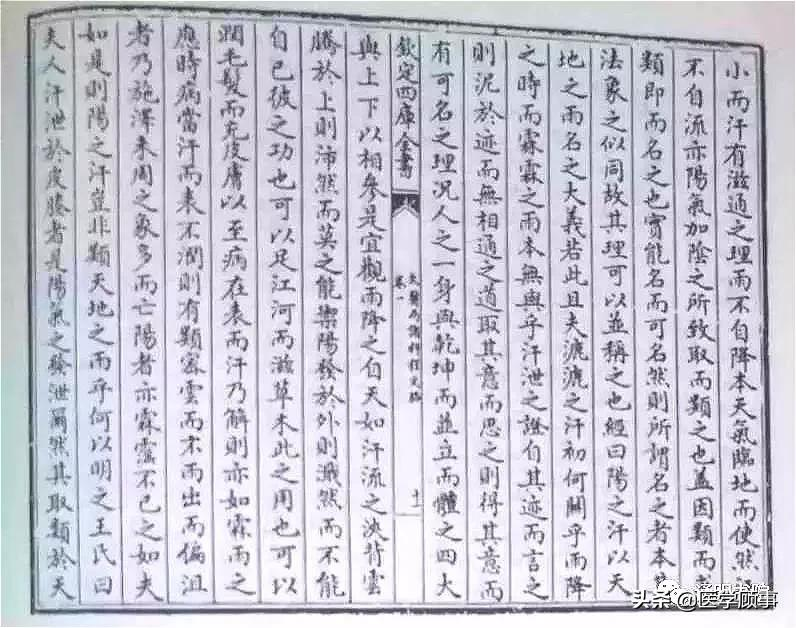 小而汗有滋通之理雨不自降本天氣臨地而使然
不自流亦陽氣加陰之所致取而類之也蓋因類而
類即而名之也實能名而可名然則所謂名之者本
法象之似同故其理可以並稱之也經曰陽之汗以天
地之雨名之大義若此且夫漉漉之汗初何關乎雨降
之時而霖霖之雨本無與乎汗泄之證自其迹而言之
則泥於迹而無相通之道取其意而思之則得其意而
有可名之理況人之一身與乾坤而並立而體之四大
欽定四庫全書
太醫局諸科程文格
卷一
十一
與上下以相參是宜觀雨降之自天如汗流之決背雲
騰於上則沛然而莫之能禦陽發於外則濈然而不能
自已彼之功也可以足江河而滋草木此之用也可以
潤毛髮而充皮膚以至病在表而汗乃解則亦如霖雨之
應時病當汗而表不潤則有類密雲而不雨出而偏沮
者乃施澤未周之象多而亡陽者亦霖霪不已之如夫
如是則陽之汗豈非類天地之雨乎何以明之王氏曰
夫人汗泄於皮腠者是陽氣之發泄爾然其取類於天
头条@医学顾事